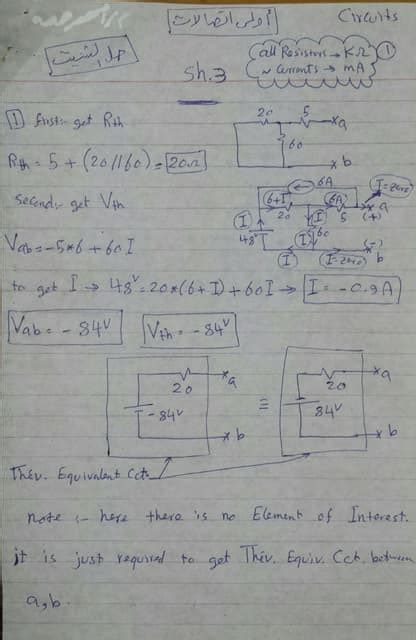 أولى اتصالات
Circuits
حل الشيت
Sh.3
all Resistors → KΩ
~ Currents → mA
1
1 First:- get Rth
Rth = 5 + (20//60) = 20Ω
20 5 a
60
b
Second:- get Vth
6A I=zero
6+I 6A a
I 20 I 5 (+)
48V I 60 (-)
I I=zero b
Vab = -5*6 + 60 I
to get I → 48V = 20*(6+I) + 60I → I = -0.9 A
Vab = -84V Vth = -84V
20 a
-84V
b
≡
20 a
84V
b
Thév. Equivalent Cct.
note :- here there is no Element of Interest.
it is just required to get Thév. Equiv. Cct. between
a,b.